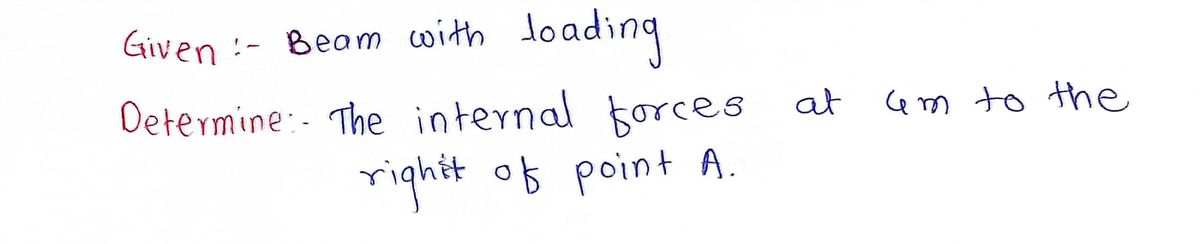 Given :- Beam with loading
Determine:- The internal forces at 4m to the
right of point A.